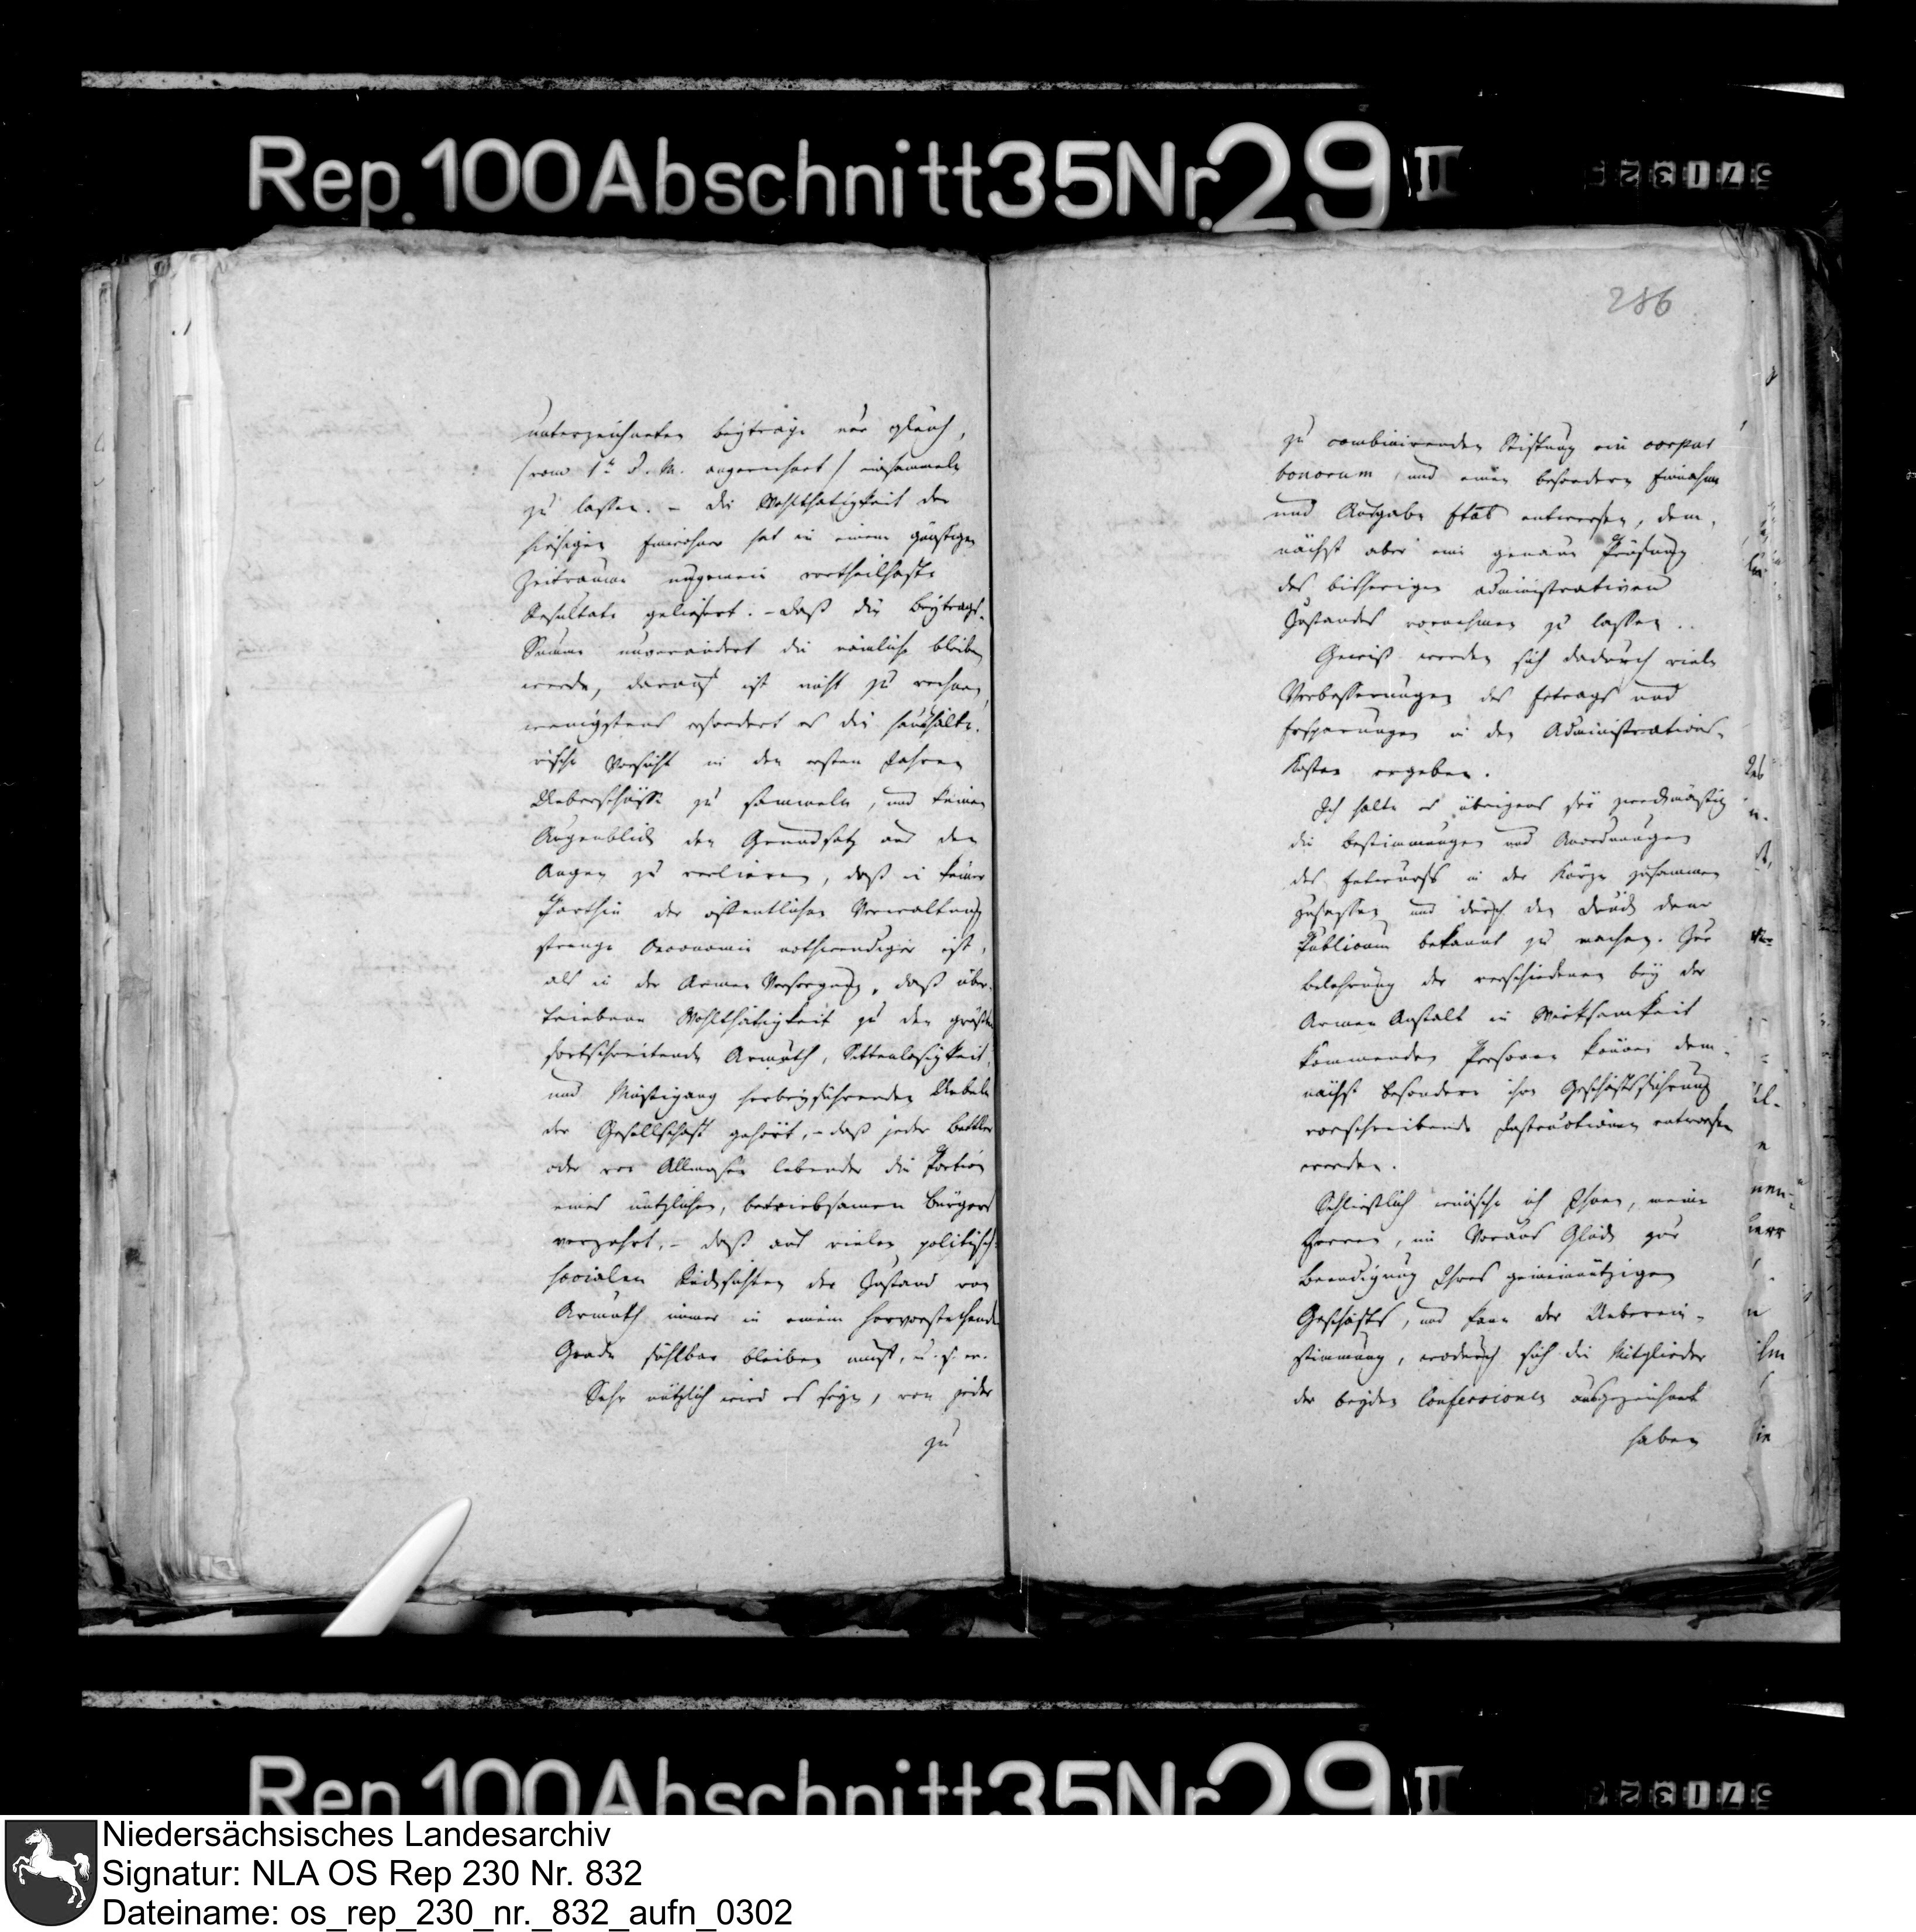 Rep. 100 Abschnitt 35 Nr. 29 II
286
unterzeichneten Beyträge nur gleich,
(vom 1ten d. M. angerechnet) einsammeln
zu lassen. – Die Wohlthätigkeit der
hiesigen Einwohner hat in einem günstigen
Zeitraume ungemein vortheilhafte
Resultate geliefert. – Daß die Beytrags-
Summe unverändert die nämliche bleiben
werde, darauf ist nicht zu rechnen,
wenigstens erfordert es die haushälte-
rische Vorsicht in den ersten Jahren
Ueberschüsse zu sammeln, und keinen
Augenblick den Grundsatz aus den
Augen zu verlieren, daß in keiner
Parthie der öffentlichen Verwaltung
strenge Oeconomie nothwendiger ist,
als in der Armen Versorgung, daß über-
triebene Wohlthätigkeit zu den größten
fortschreitende Armuth, Sittenlosigkeit,
und Müssigang herbeyführenden Uebeln
der Gesellschaft gehört, – daß jeder Bettler
oder von Allmosen lebender die Portion
eines nützlichen, betriebsamen Bürgers
verzehrt, – daß aus vielen politisch-
socialen Rücksichten der Zustand von
Armuth immer in einem hervorstechenden
Grade fühlbar bleiben muß, u. s. w.
Sehr nützlich wird es seyn, von jeder
zu
zu combinirenden Stiftung ein corpus
bonorum und einen besondern Einnahme
und Ausgabe Etat entwerfen, dem-
nächst aber eine genaue Prüfung
des bisherigen administrativen
Zustandes vornehmen zu lassen.
Gewiß werden sich dadurch viele
Verbesserungen des Ertrags und
Ersparungen in den Administrations-
Kosten ergeben.
Ich halte es übrigens für zweckmäßig
die Bestimmungen und Anordnungen
des Entwurfs in der Kürze zusammen
zufassen und durch den Druck dem
Publicum bekannt zu machen. Zur
Belehrung der verschiedenen bey der
Armen Anstalt in Wirksamkeit
kommenden Personen können dem-
nächst besondere ihre Geschäftsführung
vorschreibende Instructionen entworfen
werden.
Schließlich wünsche ich Ihnen, meine
Herren, im Voraus Glück zur
Beendigung Ihres gemeinnützigen
Geschäfts, und der Ueberein-
stimmung, wodurch sich die Mitglieder
der beyden Confessionen ausgezeichnet
haben
Rep. 100 Abschnitt 35 Nr. 29 II
Niedersächsisches Landesarchiv
Signatur: NLA OS Rep 230 Nr. 832
Dateiname: os_rep_230_nr._832_aufn_0302